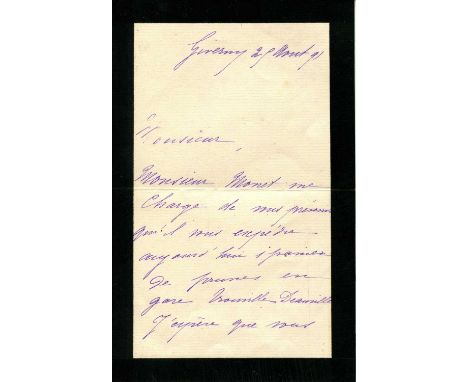 Giverny 25 Aout 91
Monsieur,
Monsieur Monet me
charge de vous prévenir
qu'il vous expédie
aujourd'hui 1 panier
de prunes en
gare Trouville-Deauville
J'espère que vous